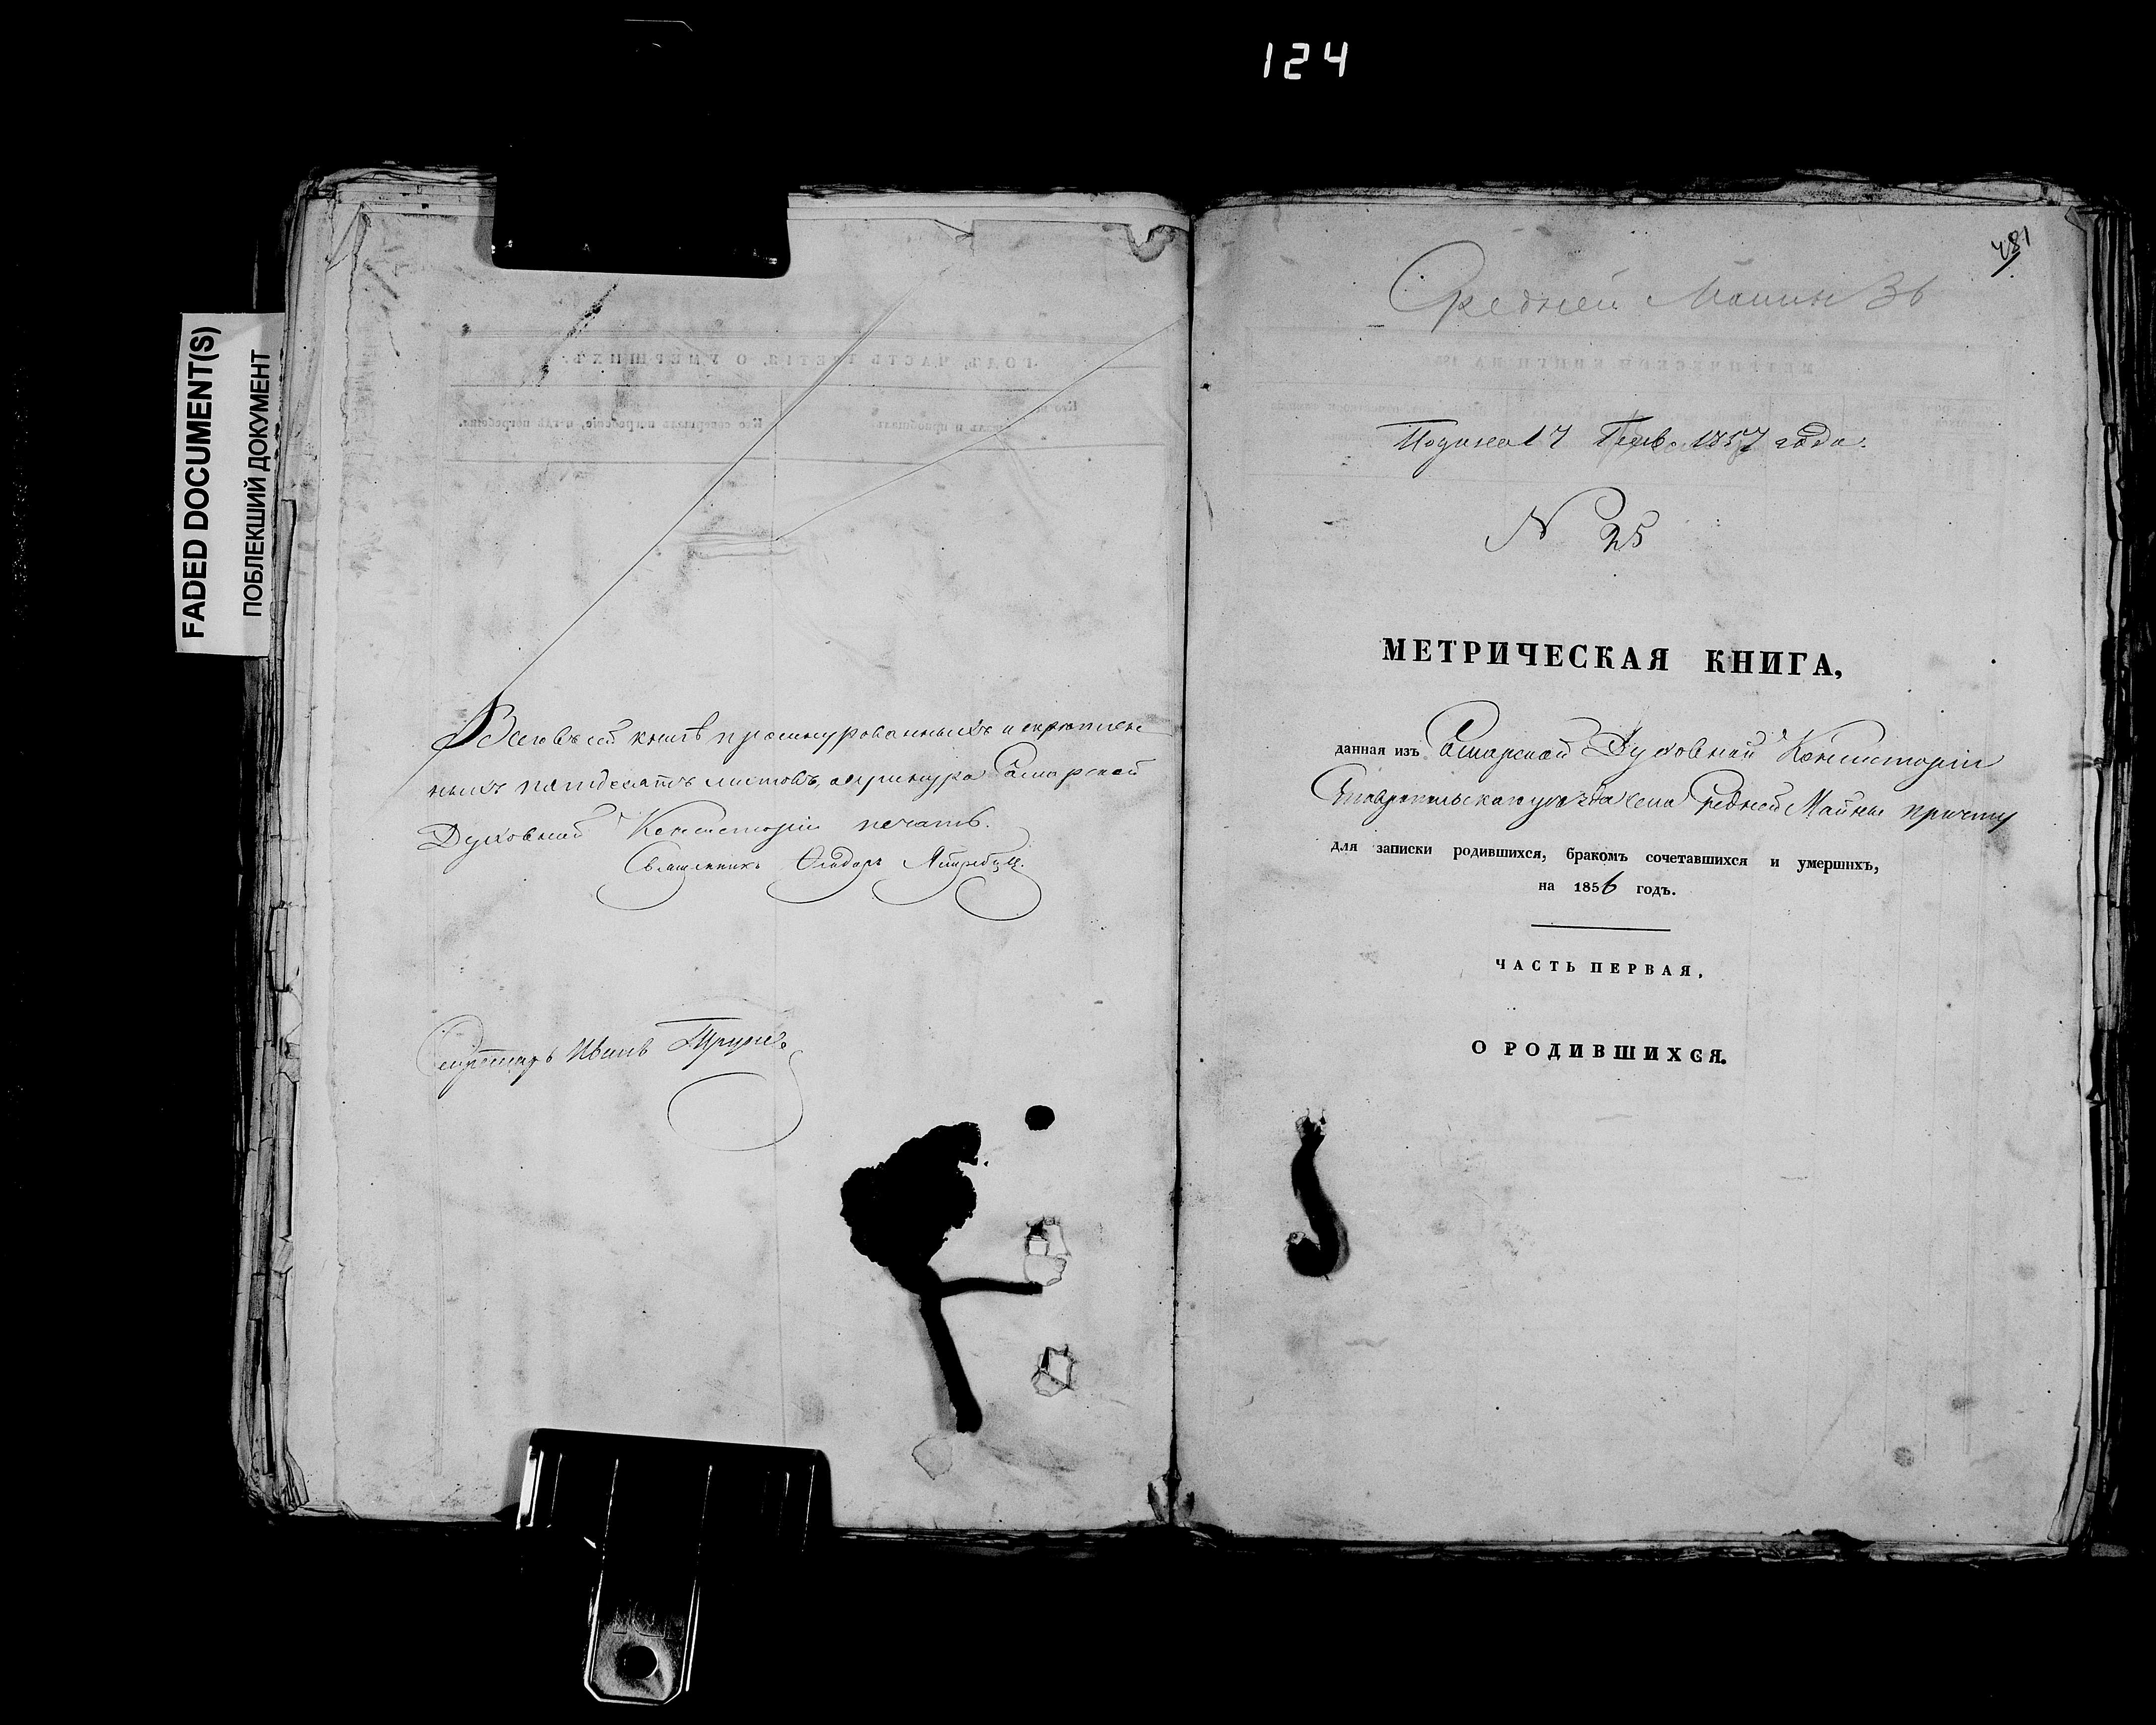 124
FADED DOCUMENT(S)
ПОБЛЕКШИЙ ДОКУМЕНТ
Всего въ сей книгѣ прошнурованныхъ и скрѣплен
ныхъ пятдесятъ листовъ, а у шнура Самарской
Духовной Консисторіи печать.
Священникъ Ѳеодоръ
Секретарь Иванъ
481
Средней Майны 36
Подана 17 Генв. 1857 года.
N 25
МЕТРИЧЕСКАЯ КНИГА,
данная изъ Самарской Духовной Консисторіи
Ставропольскаго уѣзда села Средней Майны причту
для записки родившихся, бракомъ сочетавшихся и умершихъ,
на 1856 годъ.
ЧАСТЬ ПЕРВАЯ,
О РОДИВШИХСЯ.